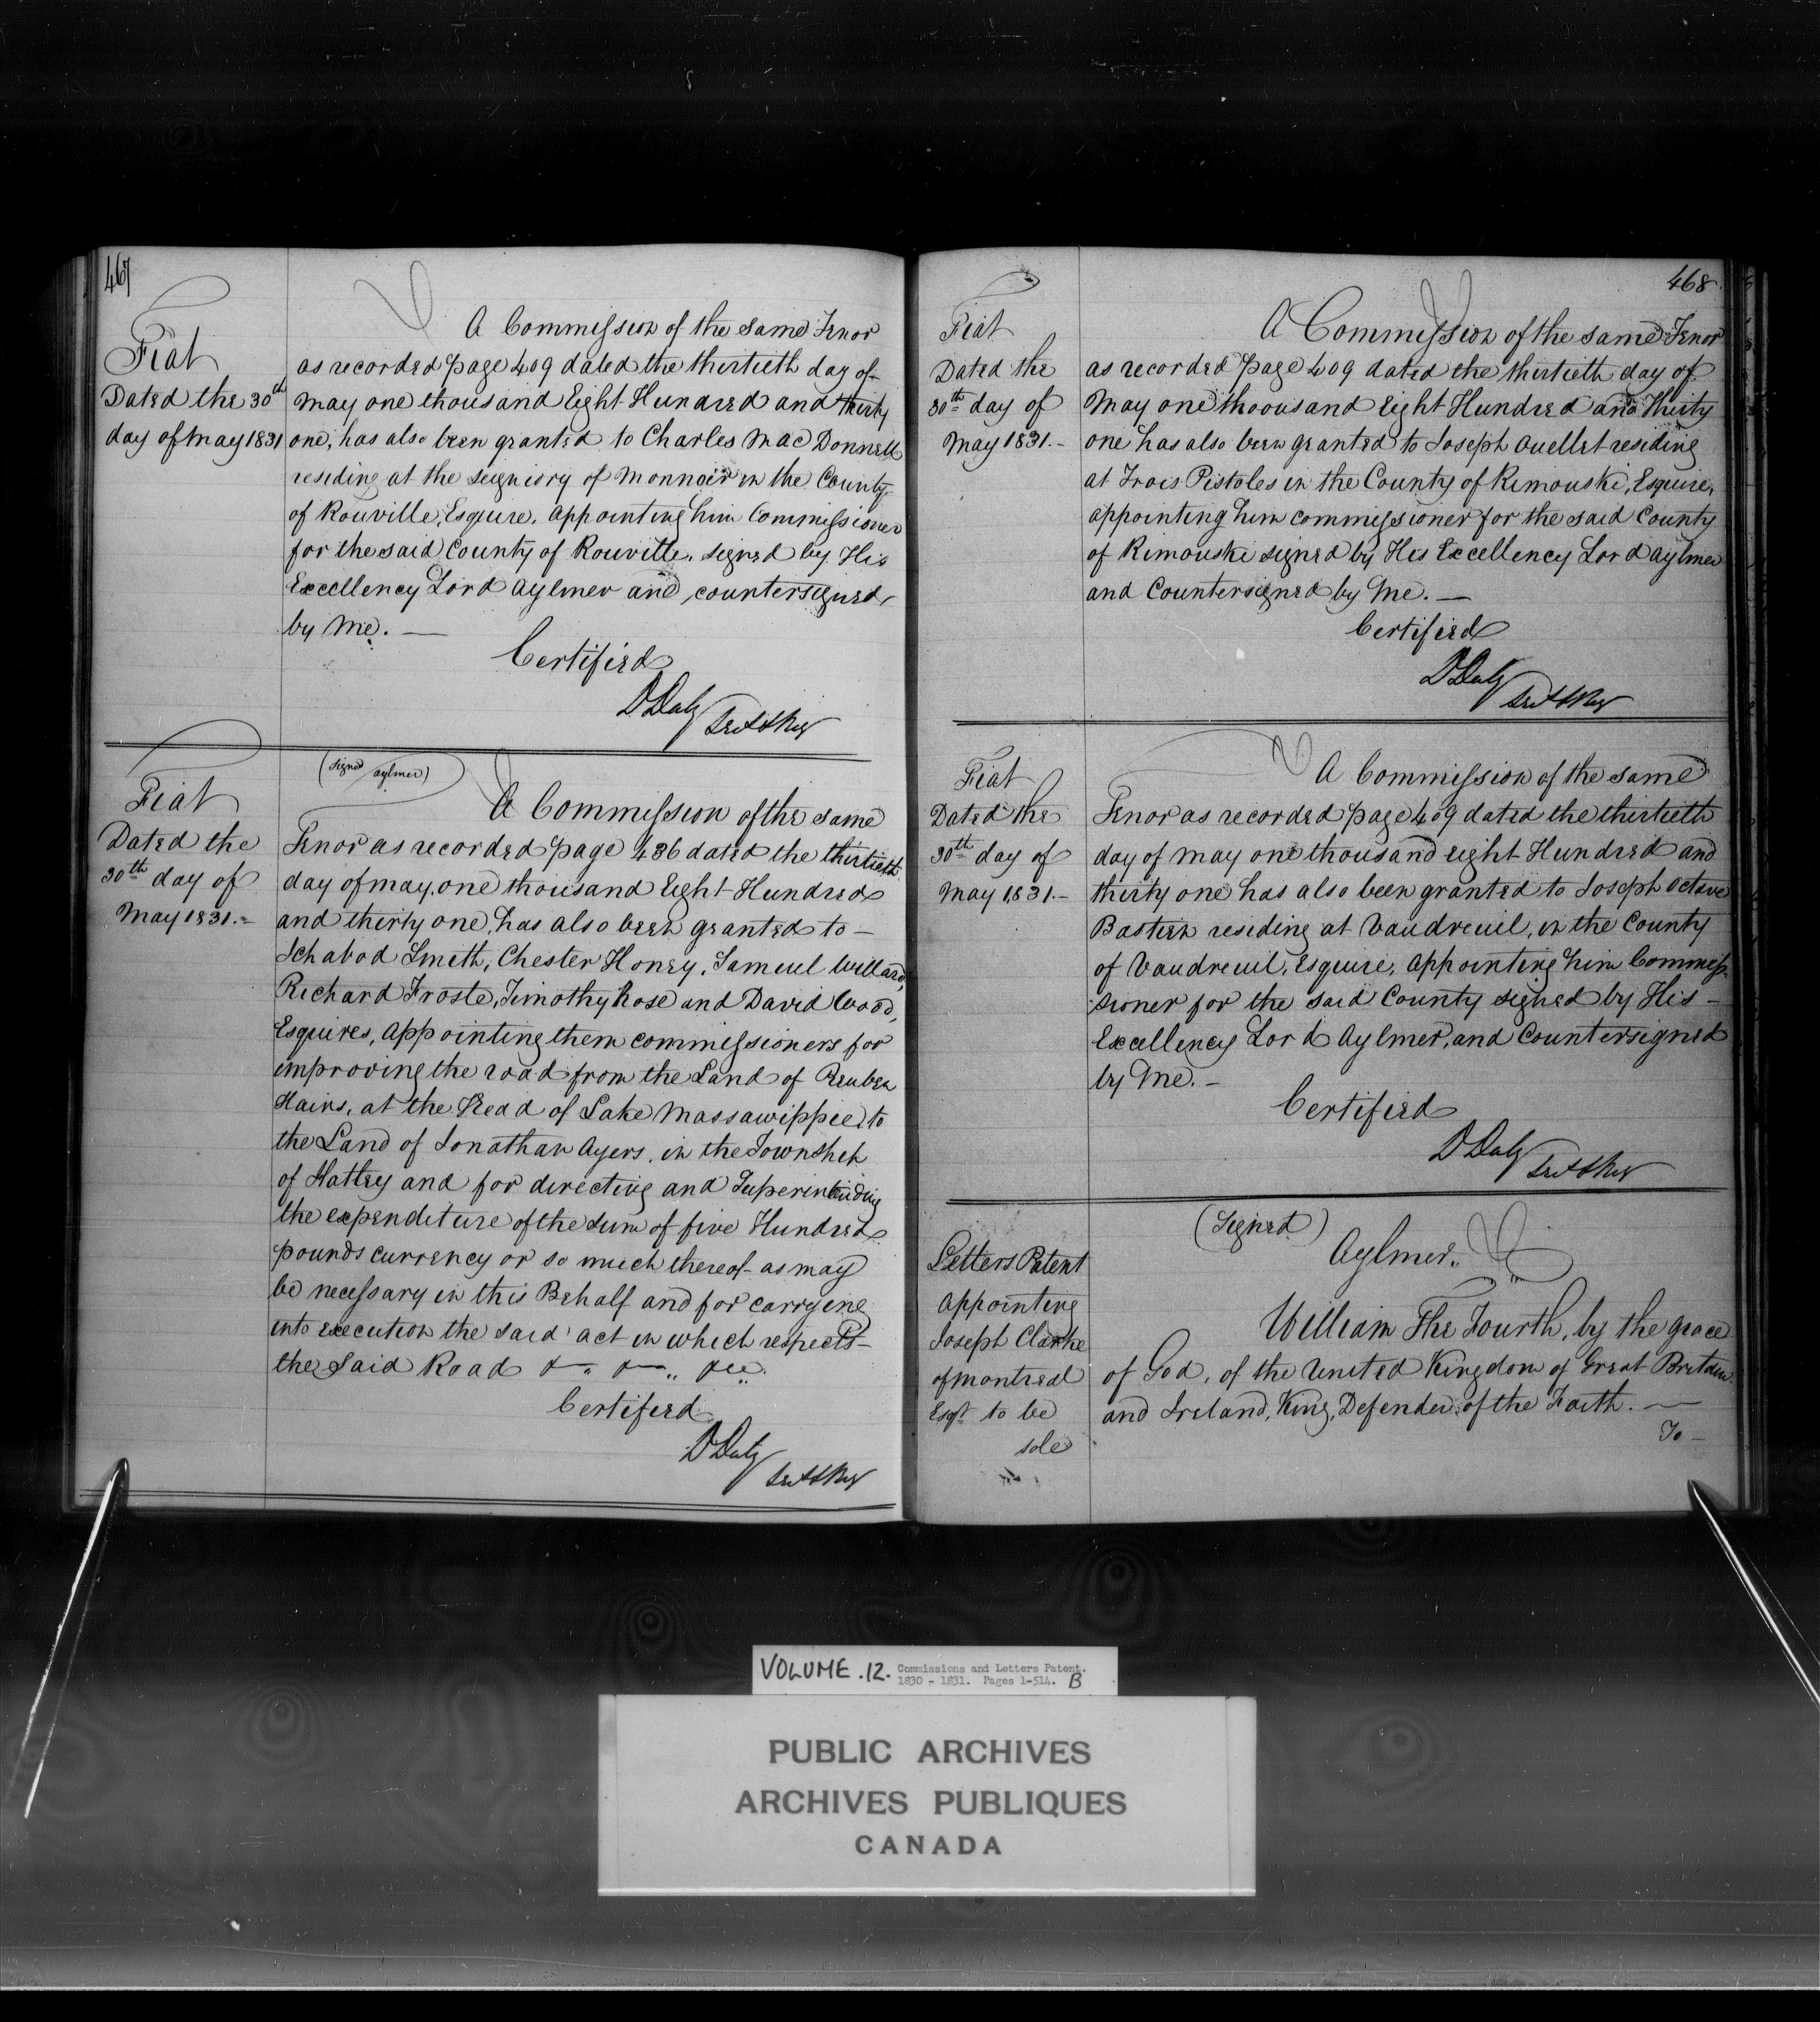 467
Fiat
Dated the 30th
day of May 1831
A Commission of the same Tenor
as recorded page 409 dated the thirtieth day of
May one thousand Eight Hundred and thirty
one, has also been granted to Charles Mac Donnell
residing at the Seigniory of Monnoir in the County
of Rouville, Esquire, appointing him Commissioner
for the said County of Rouville, signed by His
Excellency Lord Aylmer and countersigned
by Me. —
Certified
D Daly
Fiat
Dated the
30th day of
May 1831.
(Signed Aylmer)
A Commission of the same
Tenor as recorded page 436 dated the thirtieth
day of may, one thousand Eight Hundred
and thirty one, has also been granted to —
Ichabod Smith, Chester Honey, Samuel Willard,
Richard Froste, Timothy Rose and David Wood,
Esquires, appointing them commissioners for
improving the road from the Land of Reuben
Hains, at the Head of Lake Massawippie to
the Land of Jonathan Ayers, in the Township
of Hatley and for directing and Superintending
the expenditure of the sum of five Hundred
pounds currency or so much thereof as may
be necessary in this Behalf and for carrying
into execution the said act in which respects —
the Said Road
Certified
D Daly
468
Fiat
Dated the
30th day of
May 1831. —
A Commission of the same Tenor
as recorded page 409 dated the thirtieth day of
May one thoousand Eight Hundred and Thirty
one has also been granted to Joseph Ouellet residing
at Trois Pistoles in the County of Rimouski, Esquire,
appointing him commissioner for the said County
of Rimouski signed by His Excellency Lord Aylmer
and Countersigned by Me. —
Certified
D Daly
Fiat
Dated the
30th day of
May 1831. —
A Commission of the same
Tenor as recorded page 409 dated the thirtieth
day of May one thousand eight Hundred and
thirty one has also been granted to Joseph Octave
Bastien residing at Vaudreuil, in the County
of Vaudreuil, Esquire, appointing him Commis-
sioner for the said County signed by His —
Excellency Lord Aylmer, and Countersigned
by Me. —
Certified
D Daly
Letters Patent
Appointing
Joseph Clarke
of Montreal
Esqr. to be
sole
(Signed)
Aylmer.
William The Fourth, by the grace
of God, of the United Kingdom of Great Britain
and Ireland, King, Defender of the Faith. —
To —
VOLUME .12. Commissions and Letters Patent.
1830 - 1831. Pages 1-514. B
PUBLIC ARCHIVES
ARCHIVES PUBLIQUES
CANADA